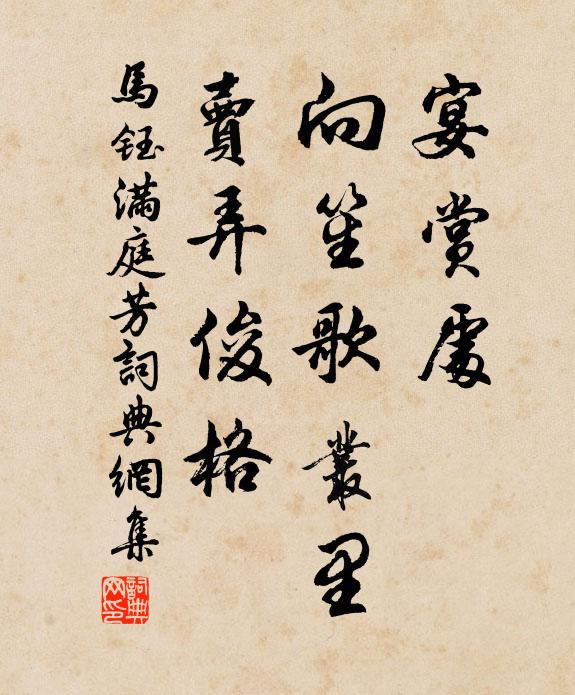 宴賞處
向笙歌叢里
賣弄俊格
馬鈺滿庭芳詞典網集
詞典網印